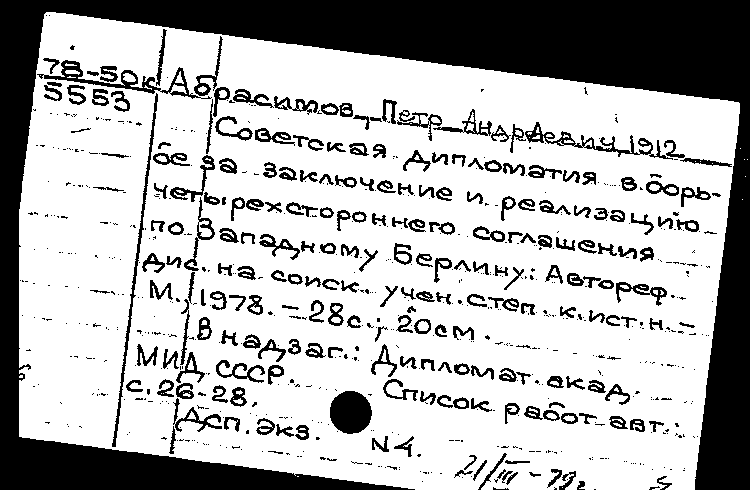 78-50к Абрасимов, Петр Андреевич, 1912
5553
Советская дипломатия в борь-
бе за заключение и реализацию
четырехстороннего соглашения
по Западному Берлину: Автореф.
дис. на соиск. учен. степ. к. ист. н. -
М., 1978. - 28с.; 20см.
В надзаг.: Дипломат. акад.
МИД СССР. Список работ авт.:
с. 26-28.
Дсп. экз. N4.
21/III - 79г.